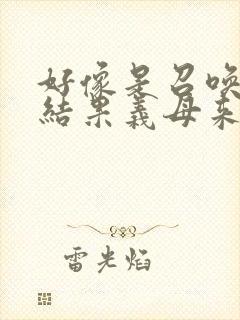 好像是召喚
結果義母来
雷光焰